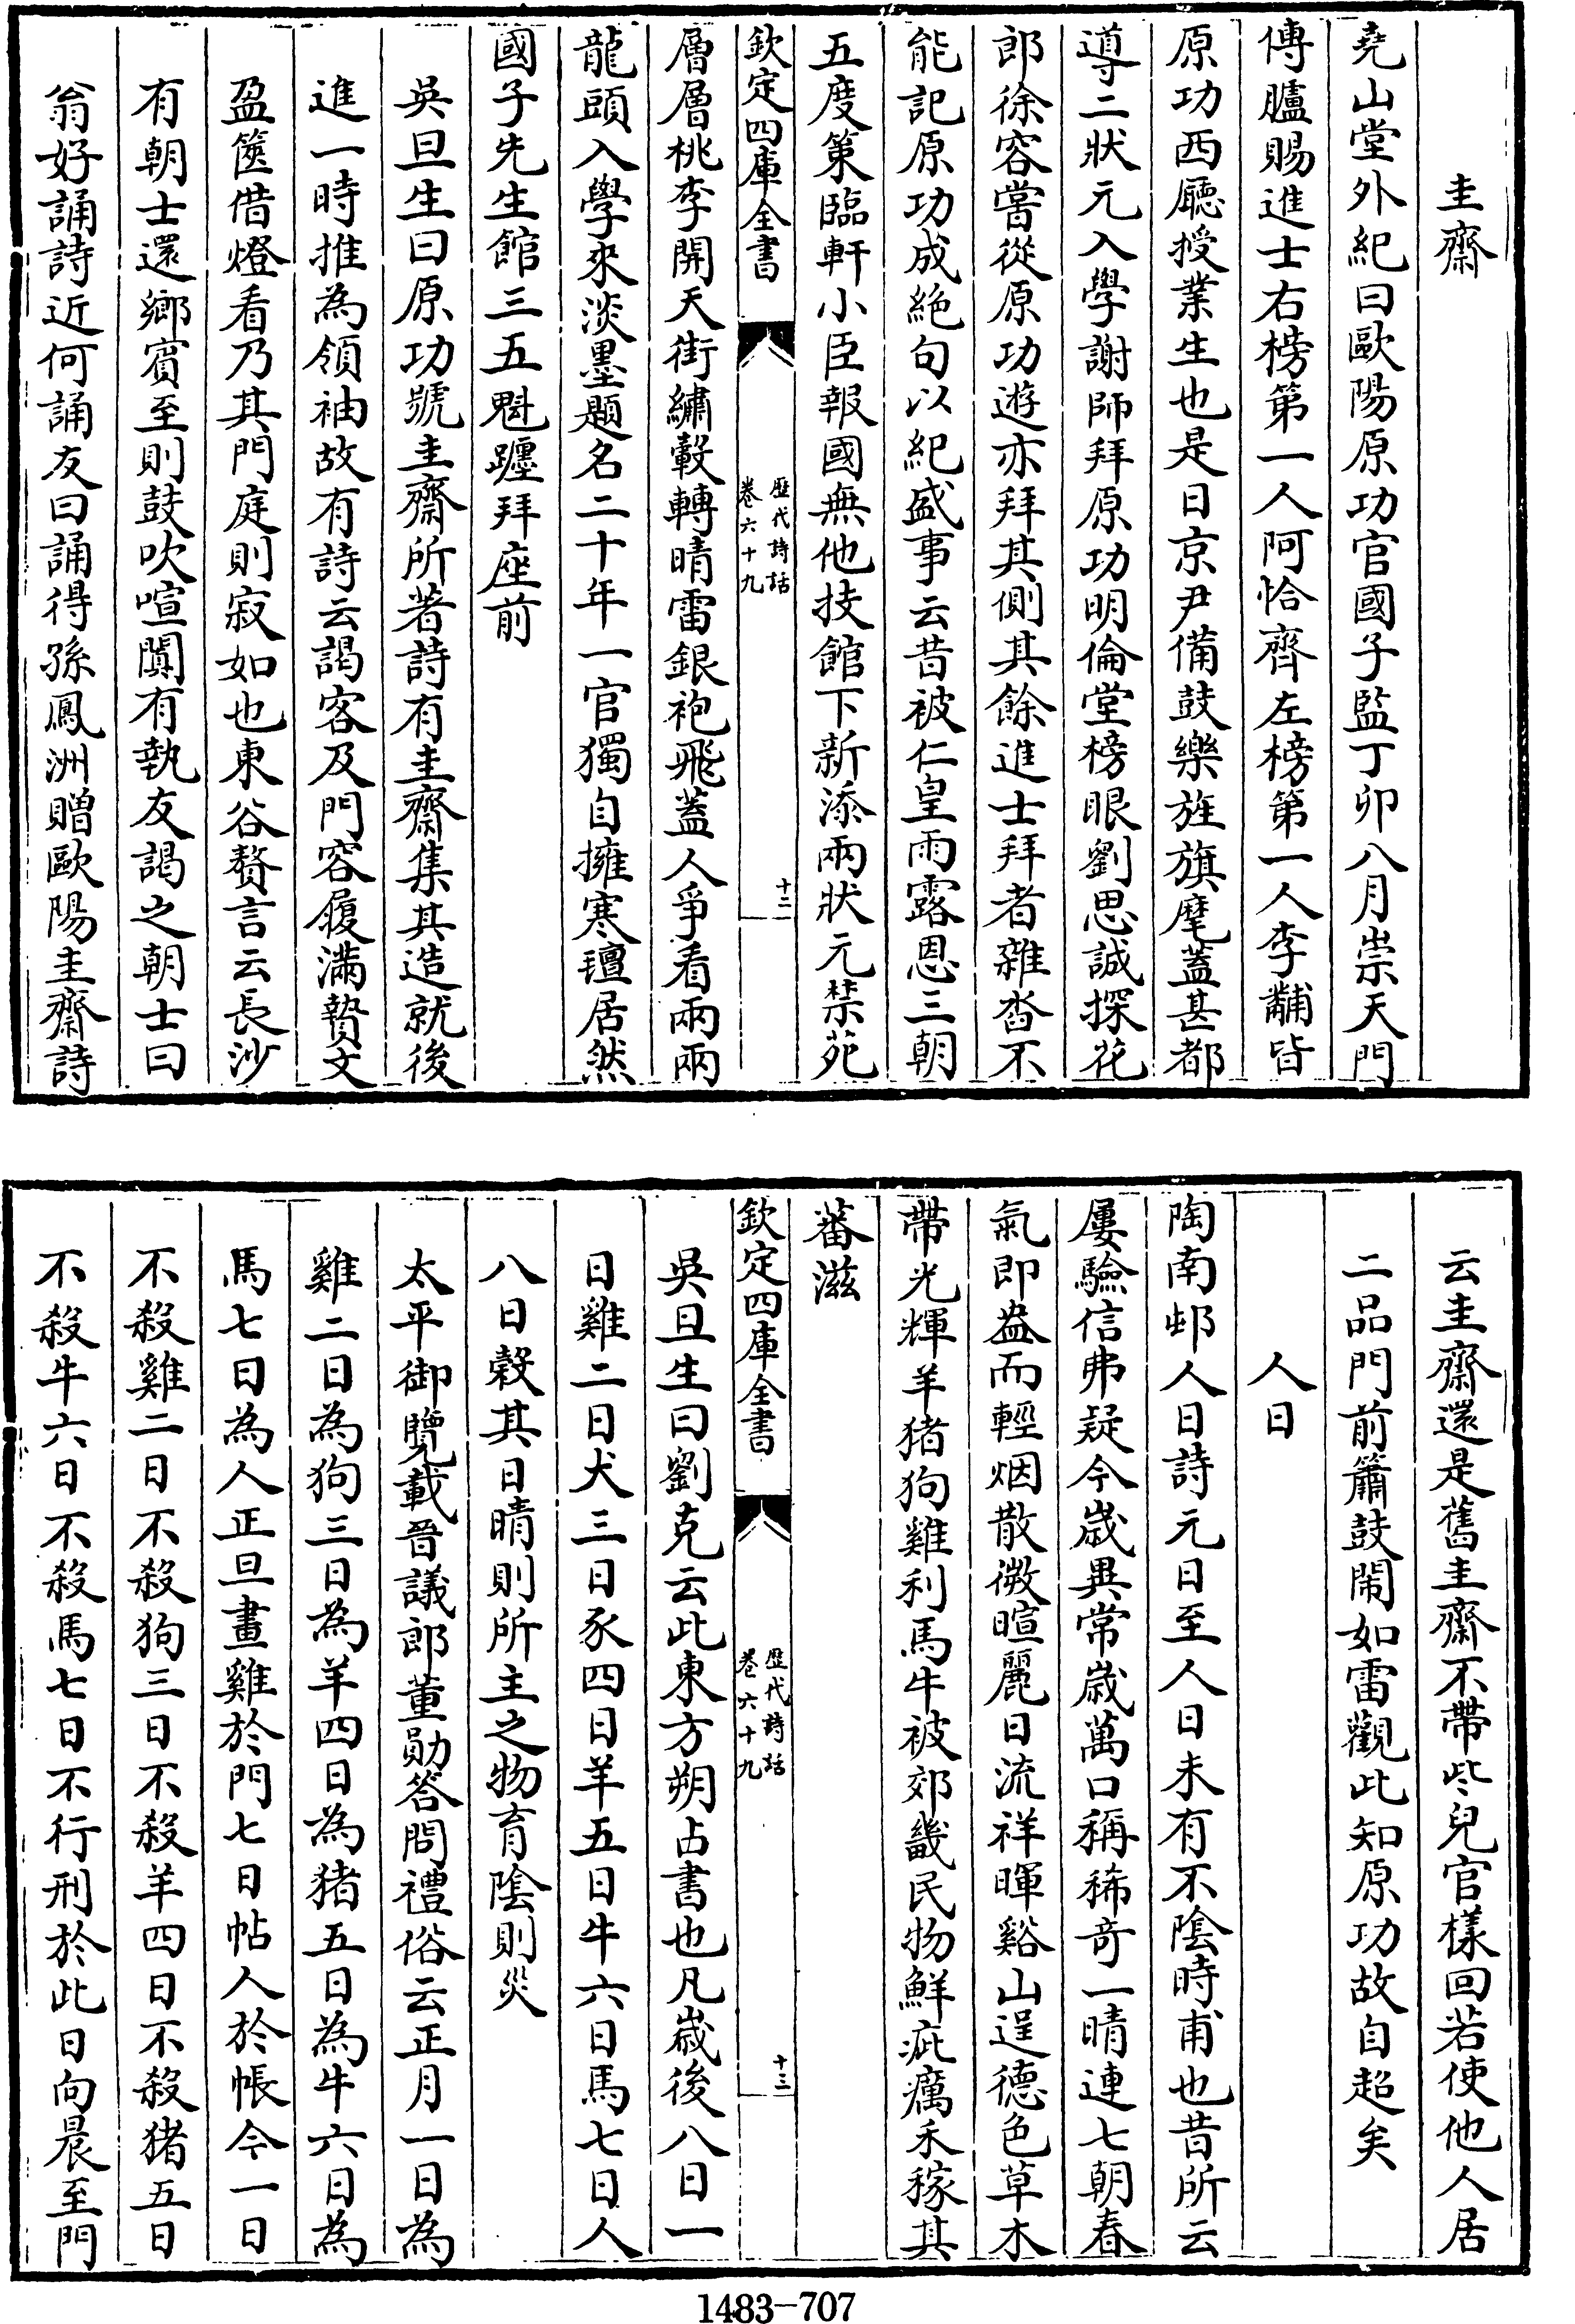 圭齋
堯山堂外紀曰歐陽原功官國子監丁卯八月崇天門
傳臚賜進士右榜第一人阿恰齊左榜第一人李黼皆
原功西廳授業生也是日京尹備鼓樂旌旗麾蓋甚都
導二狀元入學謝師拜原功明倫堂榜眼劉思誠探花
郎徐容嘗從原功遊亦拜其側其餘進士拜者雜沓不
能記原功成絶句以紀盛事云昔被仁皇雨露恩三朝
五度策臨軒小臣報國無他技館下新添兩狀元禁苑
欽定四庫全書
歷代詩話
卷六十九
十二
層層桃李開天街繡轂轉晴雷銀袍飛蓋人爭看兩兩
龍頭入學來淡墨題名二十年一官獨自擁寒氊居然
國子先生館三五魁躔拜座前
吳旦生曰原功號圭齋所著詩有圭齋集其造就後
進一時推為領袖故有詩云謁客及門容履滿贄文
盈篋借燈看乃其門庭則寂如也東谷贅言云長沙
有朝士還鄉賓至則鼓吹喧闐有執友謁之朝士曰
翁好誦詩近何誦友曰誦得孫鳳洲贈歐陽圭齋詩
云圭齋還是舊圭齋不帶些兒官樣回若使他人居
二品門前簫鼓鬧如雷觀此知原功故自超矣
人日
陶南邨人日詩元日至人日未有不陰時甫也昔所云
屢驗信弗疑今歲異常歲萬口稱稀奇一晴連七朝春
氣即盎而輕烟散微暄麗日流祥暉谿山逞德色草木
帶光輝羊猪狗雞利馬牛被郊畿民物鮮疵癘禾稼其
蕃滋
欽定四庫全書
歷代詩話
卷六十九
十三
吳旦生曰劉克云此東方朔占書也凡歲後八日一
日雞二日犬三日豕四日羊五日牛六日馬七日人
八日穀其日晴則所主之物育陰則災
太平御覽載晉議郎董勛答問禮俗云正月一日為
雞二日為狗三日為羊四日為猪五日為牛六日為
馬七日為人正旦畫雞於門七日帖人於帳今一日
不殺雞二日不殺狗三日不殺羊四日不殺猪五日
不殺牛六日不殺馬七日不行刑於此日向晨至門
1483-707